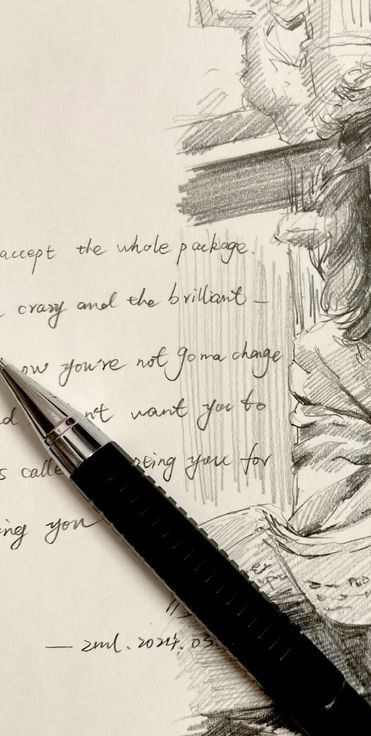 accept the whole package.
crazy and the brilliant —
ow you're not gonna change
n't want you to
s calle rting you for
ing you
— zml. 2024. 03.